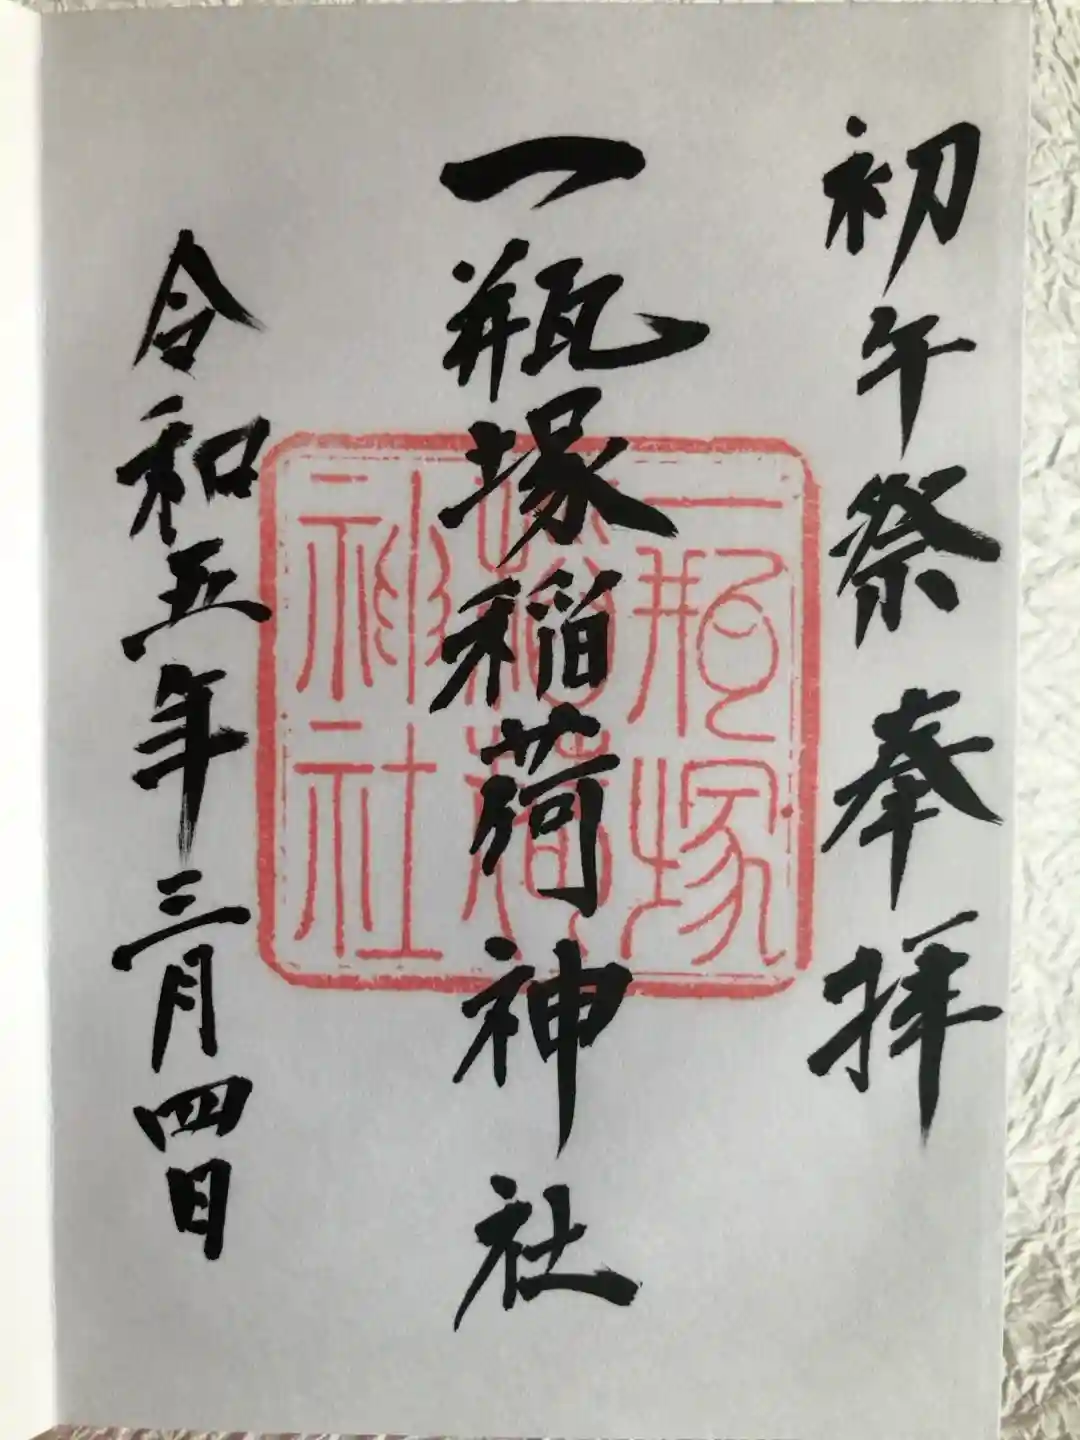 初午祭 奉拝
一瓶塚稲荷神社
令和五年三月四日
一瓶塚
稲荷
神社